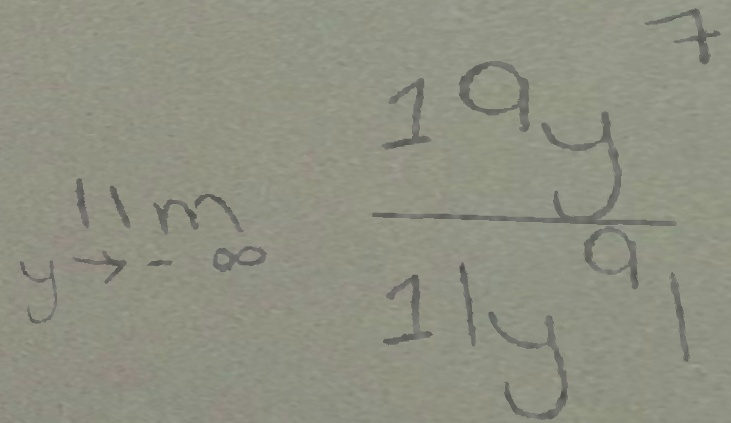 lim_{y→-∞} \frac{19y^7}{11y^{91}}